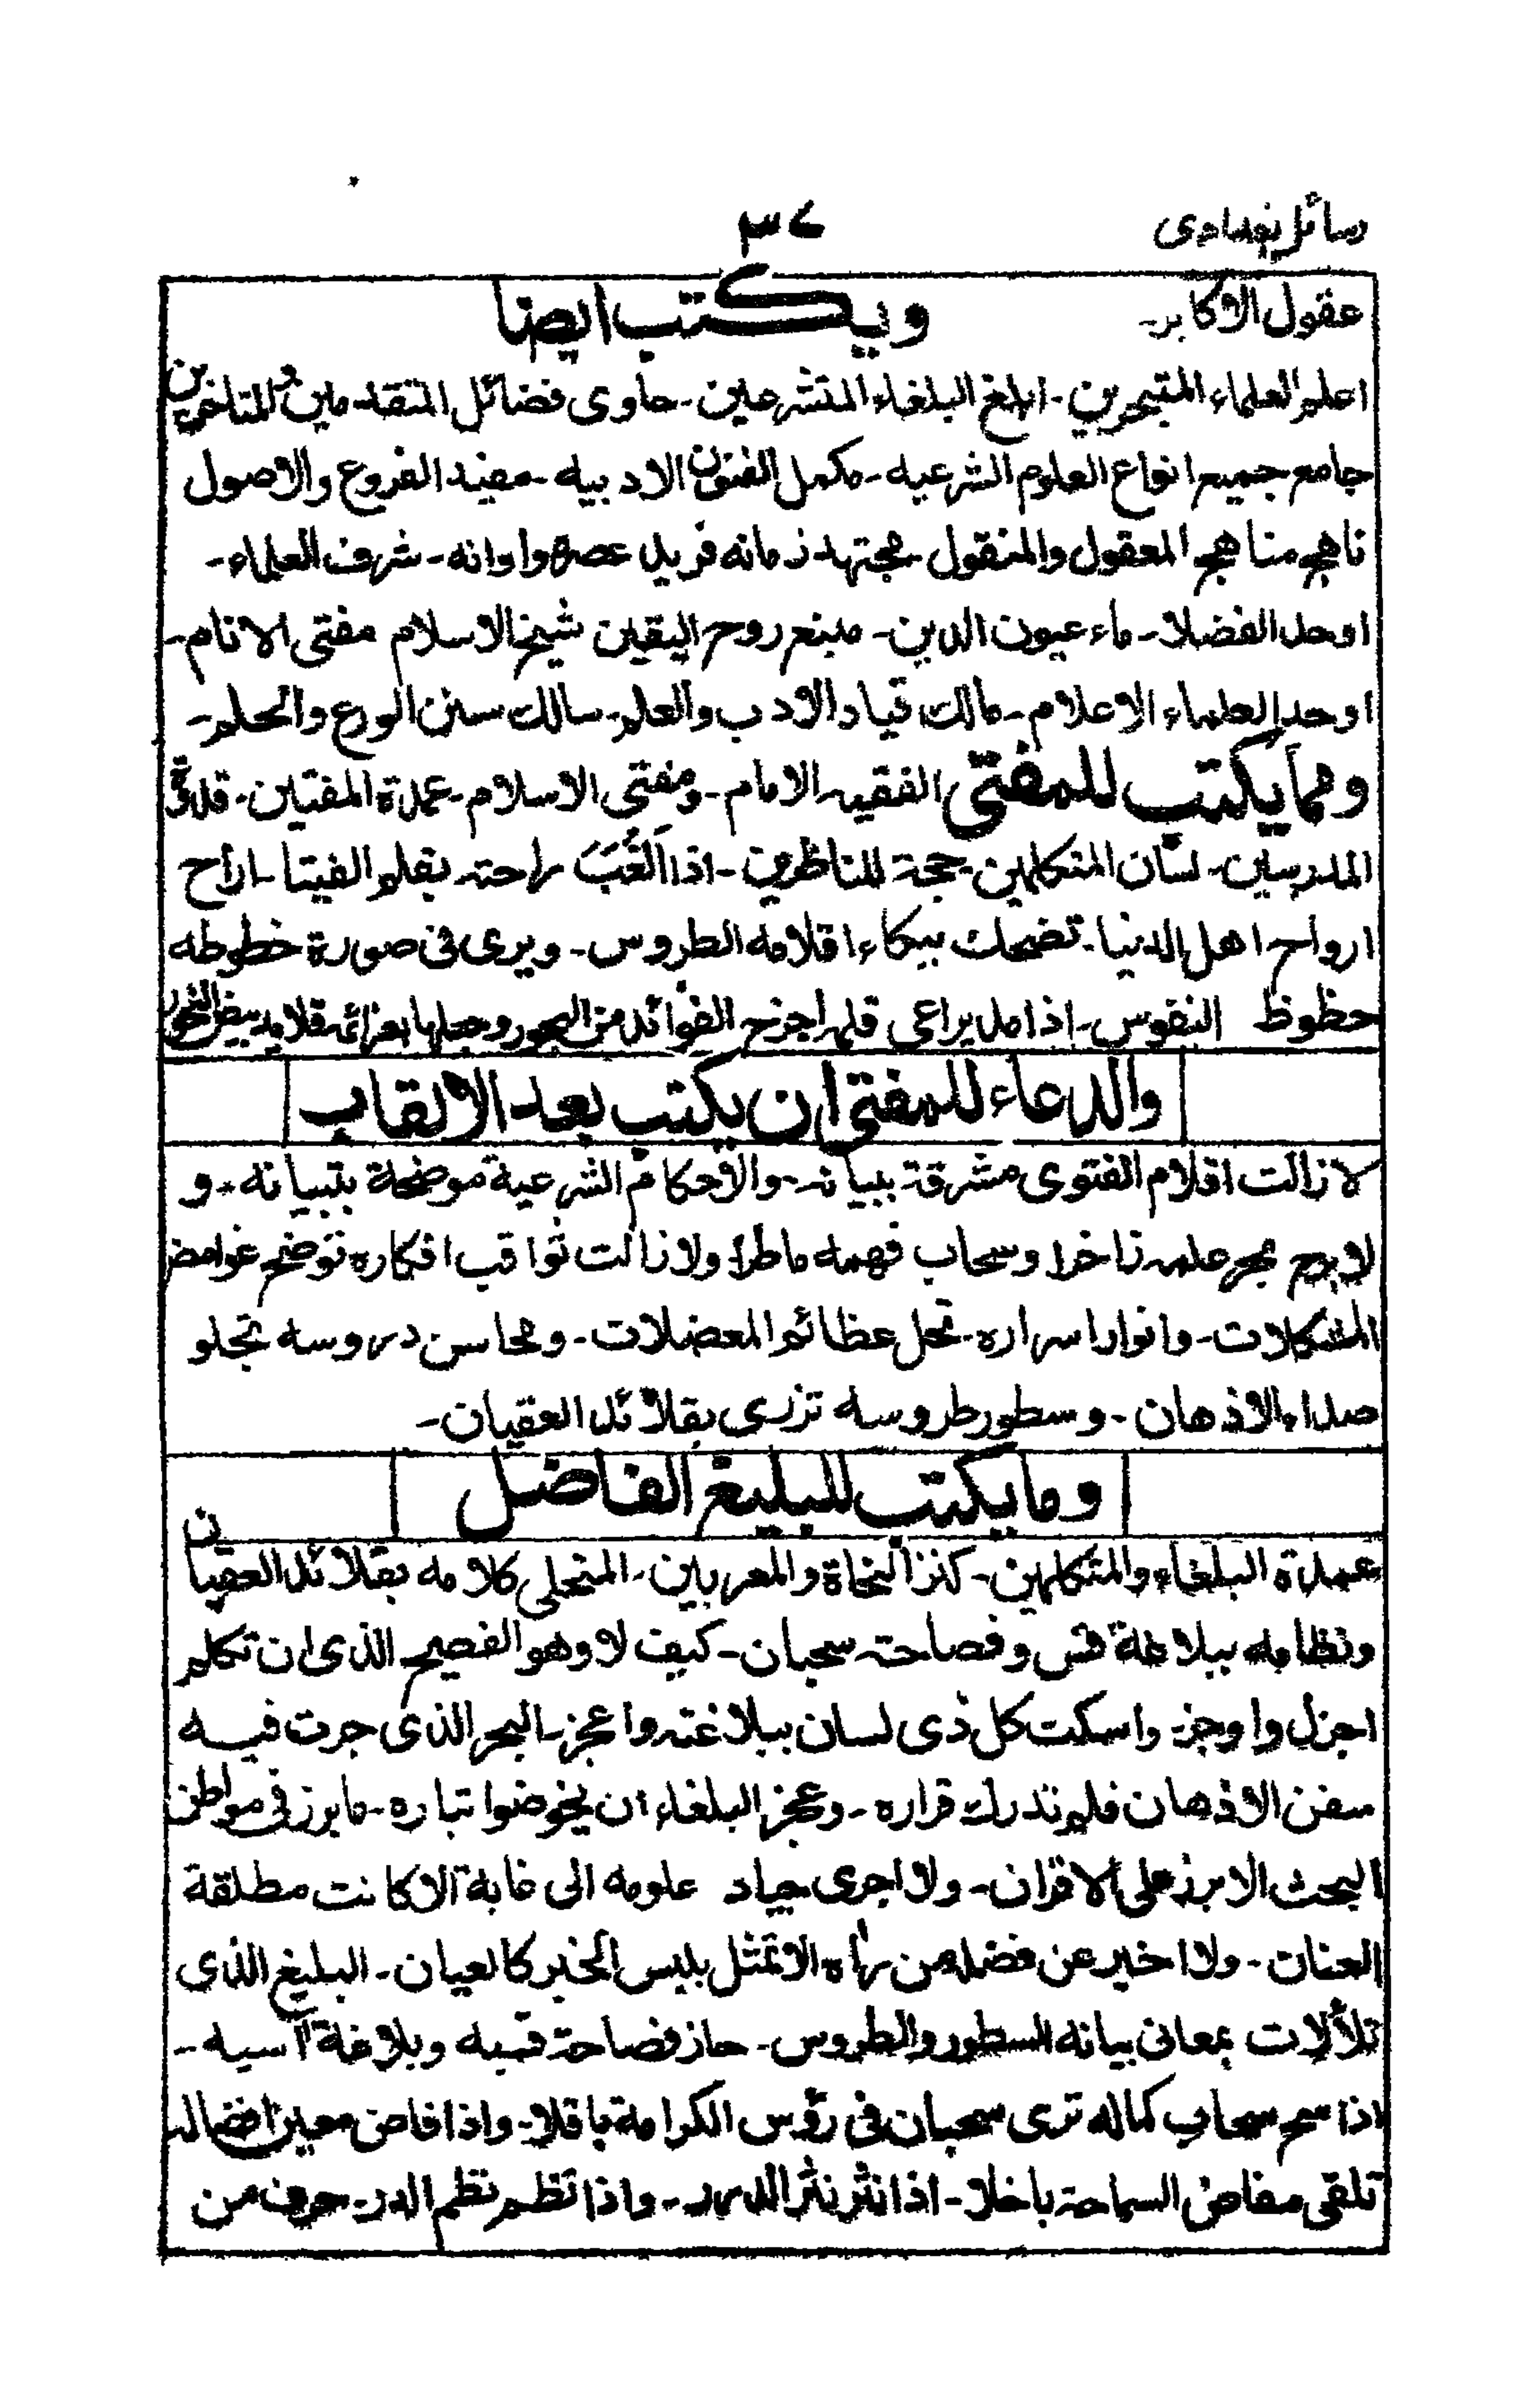 رسائل بغدادی
۳۷
عقول الاکابر۔ ویکتب ایضا
اعلم العلماء المتبحرین۔ ابلغ البلغاء المتشرعین۔ حاوی فضائل المتقدمین والمتاخرین
جامع جمیع انواع العلوم الشرعیه۔ مکمل الفنون الادبیه۔ مفید الفروع والاصول
ناهج مناهج المعقول والمنقول۔ مجتهد زمانه فرید عصره واوانه۔ شرف العلماء۔
اوحد الفضلا۔ ماء عیون الدین۔ منبع روح الیقین شیخ الاسلام مفتی الانام۔
اوحد العلماء الاعلام۔ مالك قیاد الادب والعلم۔ سالك سنن الورع والحلم۔
ومما یکتب للمفتی الفقیه الامام۔ ومفتی الاسلام۔ عمدة المفتین۔ قدوة
المدرسین۔ لسان المتکلمین۔ حجة للمناظرین۔ اذا اَتْعَبَ راحته بقلم الفتیا۔ اراح
ارواح اهل الدنیا۔ تضحك ببکاء اقلامه الطروس۔ ویری فی صورة خطوطه
حظوظ النفوس۔ اذا مد یراعی قلم اخرج الفوائد من البحور وجعلها بعزائمه قلاید بیض النحور
والدعاء للمفتی ان یکتب بعد الالقاب
لا زالت اقلام الفتوی مشرقة ببیانه۔ والاحکام الشرعیة موضحة بتبیانه۔ و
لا برح بحر علمه زاخرا وسحاب فهمه ماطرا ولا زالت ثواقب افکاره توضح غوامض
المشکلات۔ وانوار اسراره۔ تحل عظائم المعضلات۔ ومحاسن دروسه تجلو
صداء الاذهان۔ وسطور طروسه تزری بقلائد العقیان۔
وما یکتب للبلیغ الفاضل
عمدة البلغاء والمتکلمین۔ کنز النحاة والمعربین۔ المتحلی کلامه بقلائد العقیان
ونظامه ببلاغة قس وفصاحته سحبان۔ کیف لا وهو الفصیح الذی ان تکلم
اجزل واوجز۔ واسکت کل ذی لسان ببلاغته واعجز۔ البحر الذی جرت فیه
سفن الاذهان فلم تدرك قراره۔ وعجز البلغاء ان یخوضوا تیاره۔ ما برز فی مواطن
البحث الا برز علی الاقران۔ ولا اجری جیاد علومه الی غایة الا کانت مطلقة
العنان۔ ولا اخبر عن فضله من راه الا تمثل بلیس الخبر کالعیان۔ البلیغ الذی
تلألات بمعانی بیانه السطور والطروس۔ حاز فصاحة قسیه وبلاغة آسیه۔
اذا سح سحاب کماله تری سحبان فی رؤس الکرامة باقلا۔ واذا فاض معین افضاله
تلقی مفاض السماحة باخلا۔ اذا نثر نثر الدرر۔ واذا نظم نظم الدر۔ حرف من